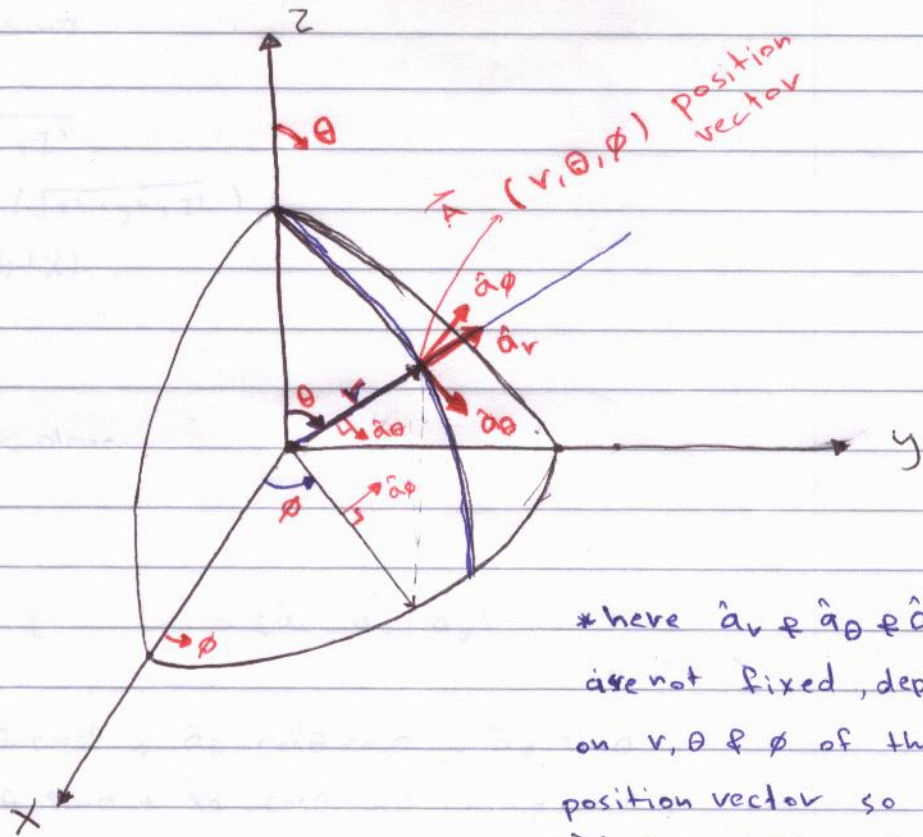 z
θ
Ā (r, θ, φ) position
vector
âφ
âr
θ
r
âθ
âθ
y
φ
âφ
φ
x
*here âr & âθ &
are not fixed,
on r, θ & φ of
position vector so